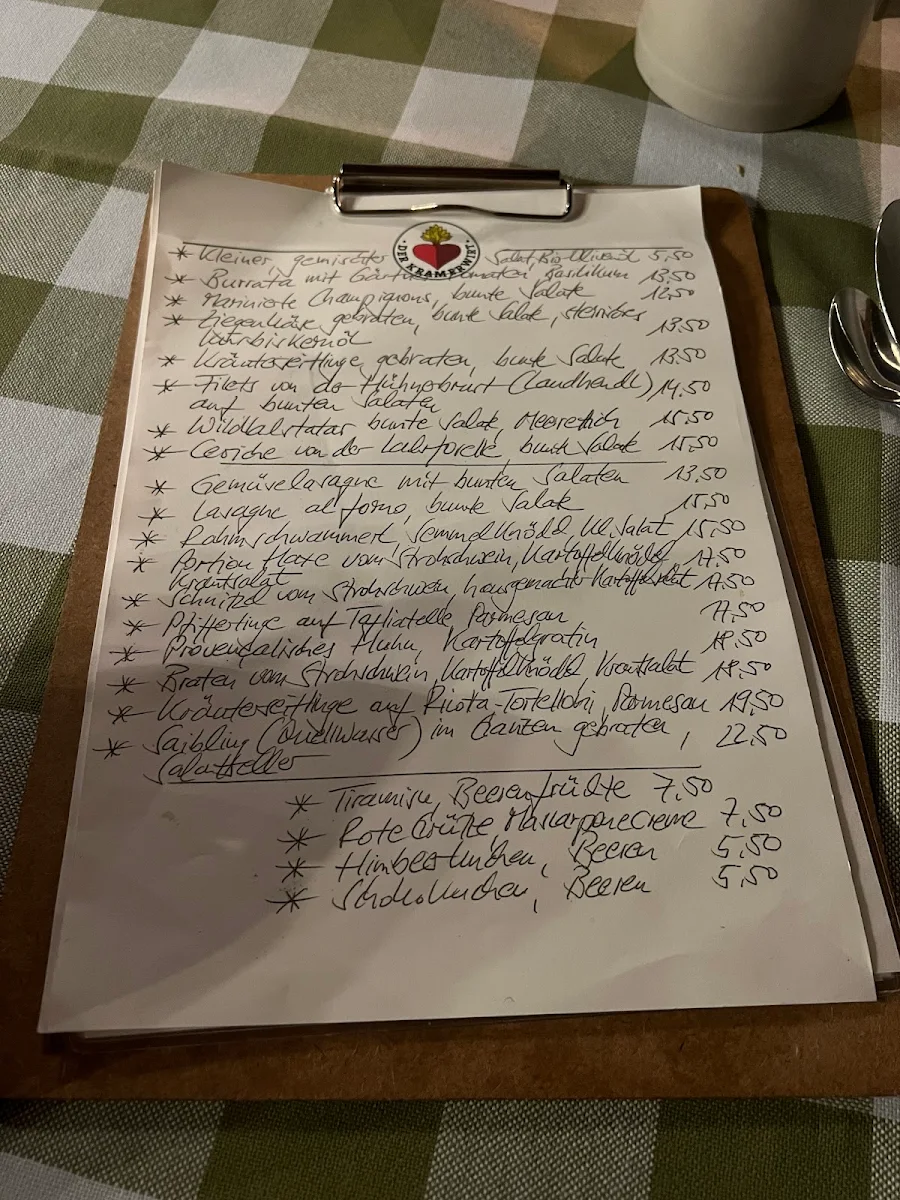 DER KRAMERWIRT
* Kleiner gemischter Salat, Bio Olivenöl 5,50
* Burrata mit Gärtnertomaten Basilikum 13,50
* Marinierte Champignons, bunte Salate 12,50
* Ziegenkäse gebraten, bunte Salate, steirisches 13,50
Kürbiskernöl
* Kräuterseitlinge, gebraten, bunte Salate 13,50
* Filets von der Hühnerbrust (Landhendl) 14,50
auf bunten Salaten
* bunte Salate, Meerrettich 15,50
* von der Lachsforelle, bunte Salate 15,50
* Gemüselasagne mit bunten Salaten 13,50
* Lasagne al forno, bunte Salate 15,50
* Rahmschwammerl, Semmelknödel, kl. Salat 15,50
* Portion Haxe vom Strohschwein, Kartoffelknödel 17,50
Krautsalat
* Schnitzel vom Strohschwein, hausgemachter Kartoffelsalat 17,50
* Pfifferlinge auf Tagliatelle Parmesan 17,50
* Provençalisches Huhn, Kartoffelgratin 18,50
* Braten vom Strohschwein, Kartoffelknödel, Krautsalat 18,50
* Kräuterseitlinge auf Ricotta-Tortelloni, Parmesan 19,50
* Saibling (Quellwasser) im Ganzen gebraten, 22,50
Salatteller
* Tiramisu, Beerenfrüchte 7,50
* Rote Grütze Mascarponecreme 7,50
* Himbeerkuchen, Beeren 5,50
* Schokokuchen, Beeren 5,50